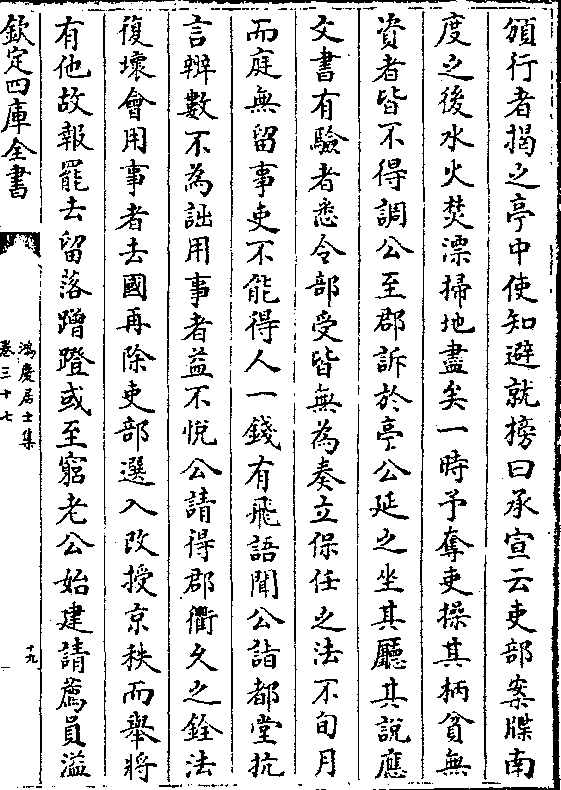 頒行者揭之亭中使知避就榜曰承宣云吏部案牒南
度之後水火焚漂掃地盡矣一時予奪吏操其柄貧無
資者皆不得調公至郡訴於亭公延之坐其廳其說應
文書有驗者悉令部受皆無為奏立保任之法不旬月
而庭無留事吏不能得人一錢有飛語聞公詣都堂抗
言辨數不為詘用事者益不悅公請得郡衢久之銓法
復壊會用事者去國再除吏部選入改授京秩而舉將
有他故報罷去留落蹭蹬或至窮老公始建請薦員溢
欽定四庫全書
鴻慶居士集
卷三十七
十九